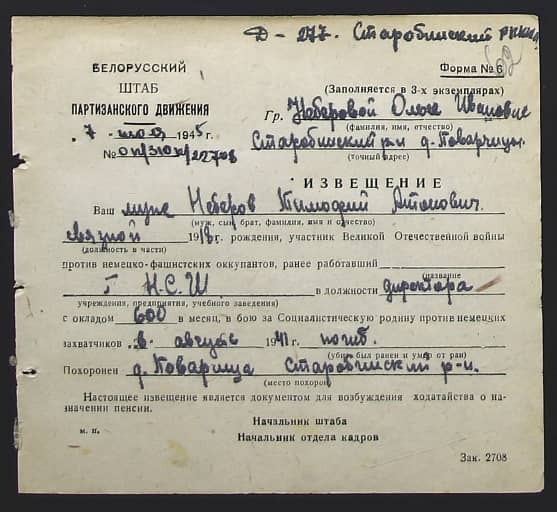 Д - 277. Старобинский РККА
62
БЕЛОРУССКИЙ
ШТАБ
ПАРТИЗАНСКОГО ДВИЖЕНИЯ
7 мая 1945 г.
№
Форма № 6
(Заполняется в 3-х экземплярах)
Гр. Неверовой Ольге Ивановне
(фамилия, имя, отчество)
Старобинский р-н д. Поварчицы.
(точный адрес)
ИЗВЕЩЕНИЕ
Ваш мужа Неверов Тимофей Антонович.
(муж, сын, брат, фамилия, имя и отчество)
связной 1918 г. рождения, участник Великой Отечественной войны
(должность в части)
против немецко-фашистских оккупантов, ранее работавший
(название
Н.С.Ш в должности директора
учреждения, предприятия, учебного заведения)
с окладом 600 в месяц, в бою за Социалистическую родину против немецких
захватчиков в августе 1941 г. погиб.
(убит, был ранен и умер от ран)
Похоронен д. Поварчица Старобинский р-н.
(место похорон)
Настоящее извещение является документом для возбуждения ходатайства о на-
значении пенсии.
Начальник штаба
м. п.
Начальник отдела кадров
Зак. 2708